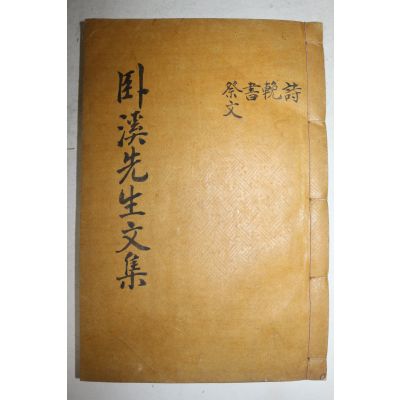 臥溪先生文集
詩
輓
書
祭文